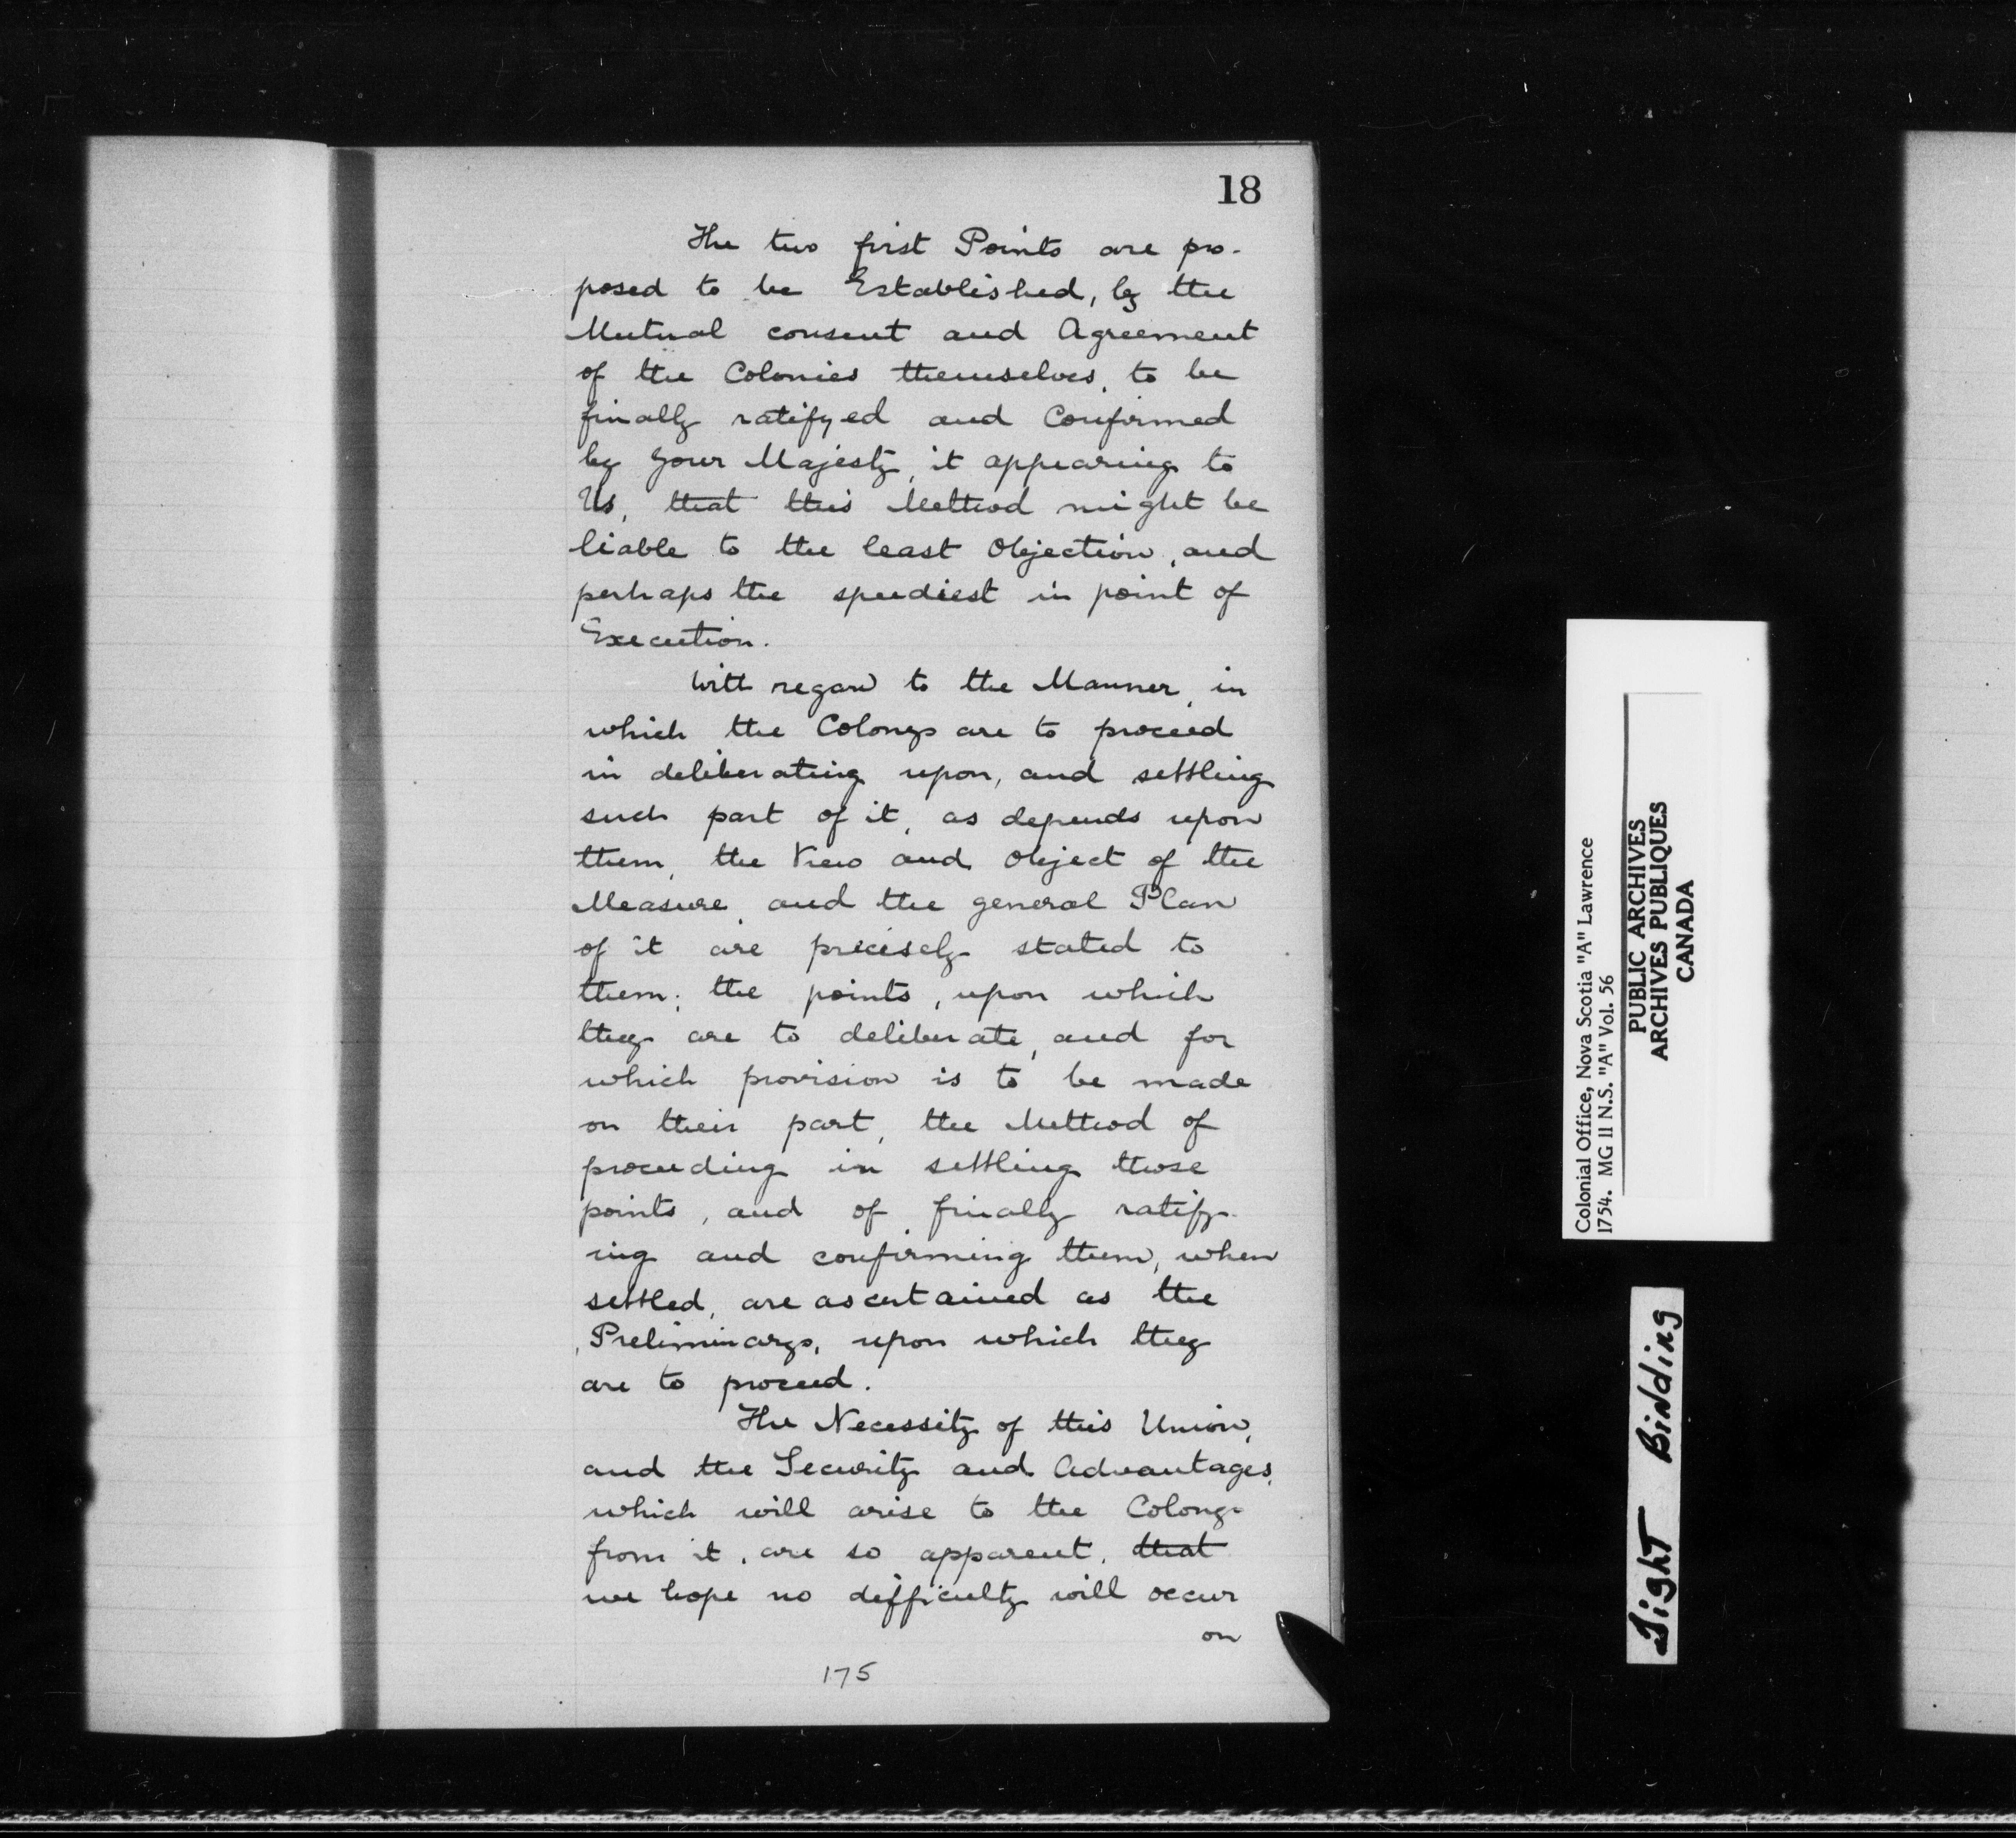 18
The two first Points are pro-
posed to be Established, by the
Mutual consent and Agreement
of the Colonies themselves, to be
finally ratifyed and Confirmed
by Your Majesty, it appearing to
Us, that this Method might be
liable to the least Objection, and
perhaps the speediest in point of
Execution.
With regard to the Manner, in
which the Colonys are to proceed
in deliberating upon, and settling
such part of it, as depends upon
them, the View and Object of the
Measure, and the general Plan
of it are precisely stated to
them; the points, upon which
they are to deliberate, and for
which provision is to be made
on their part, the Method of
proceeding in settling those
points, and of finally ratify-
ing and confirming them, when
settled, are ascertained as the
Preliminarys, upon which they
are to proceed.
The Necessity of this Union,
and the Security and Advantages,
which will arise to the Colonys
from it, are so apparent, that
we hope no difficulty will occur
on
175
Colonial Office, Nova Scotia "A" Lawrence
1754. MG 11 N.S. "A" Vol. 56
PUBLIC ARCHIVES
ARCHIVES PUBLIQUES
CANADA
Tight Binding